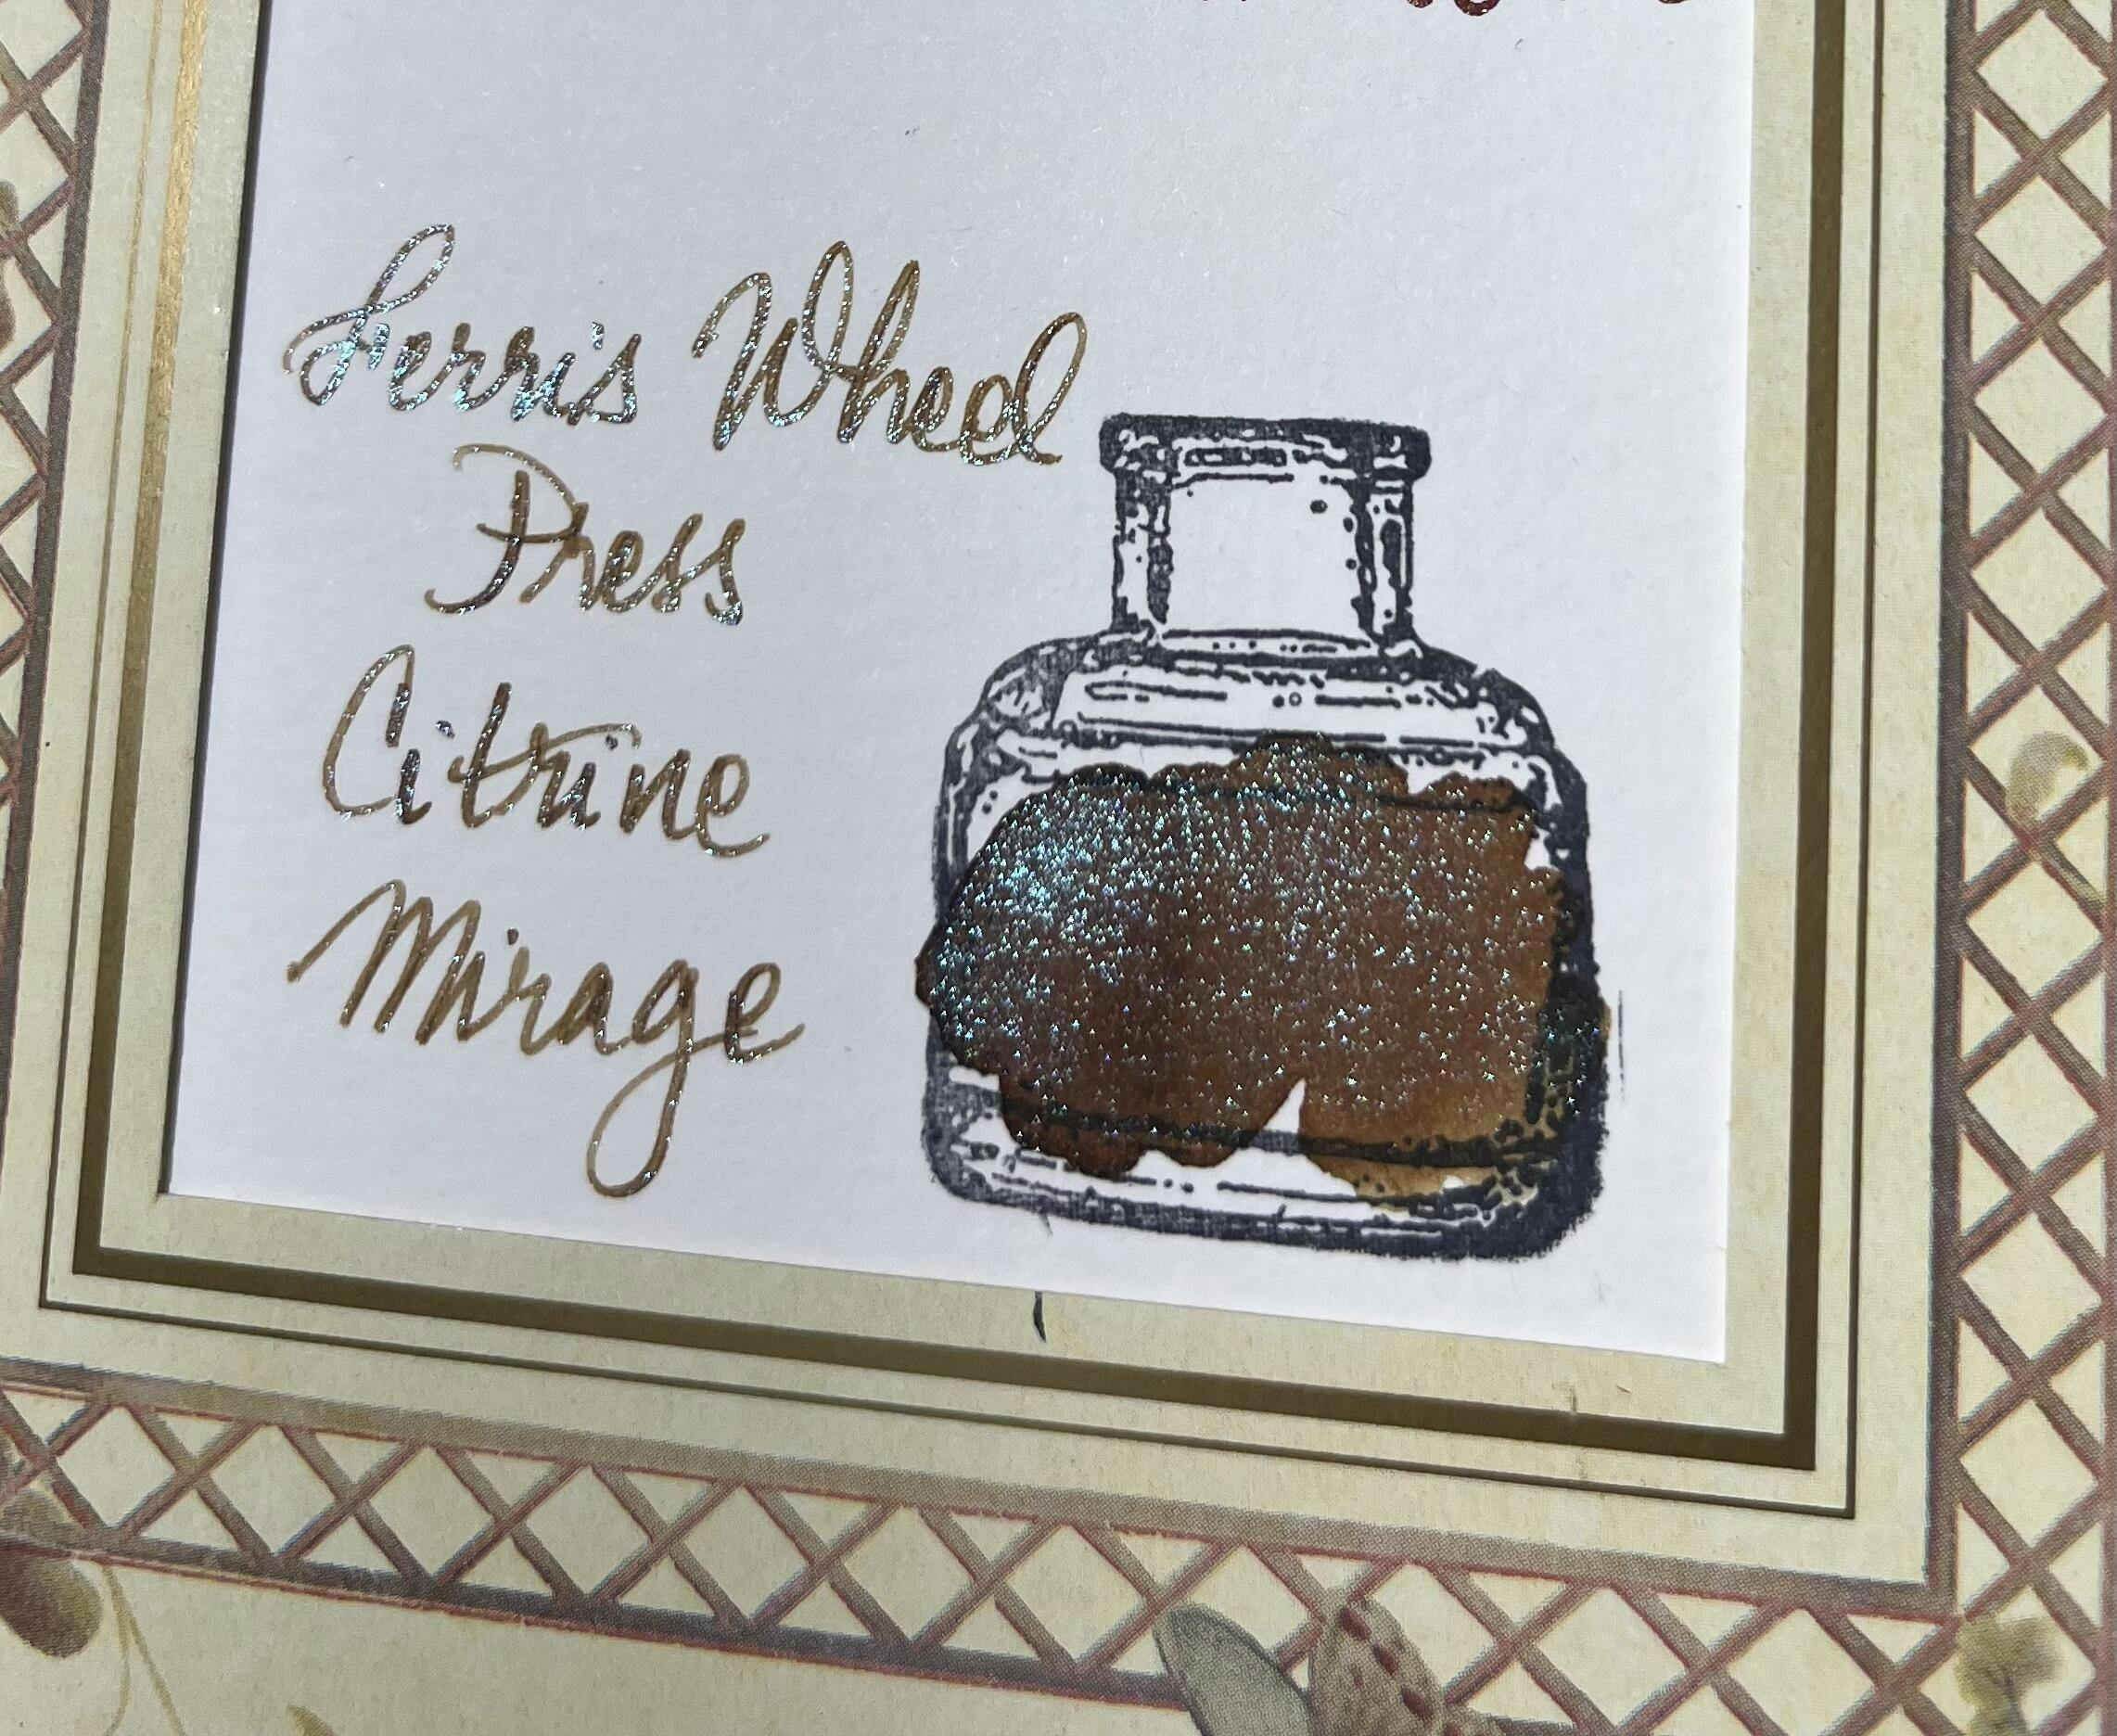 Ferris Wheel
Press
Citrine
Mirage